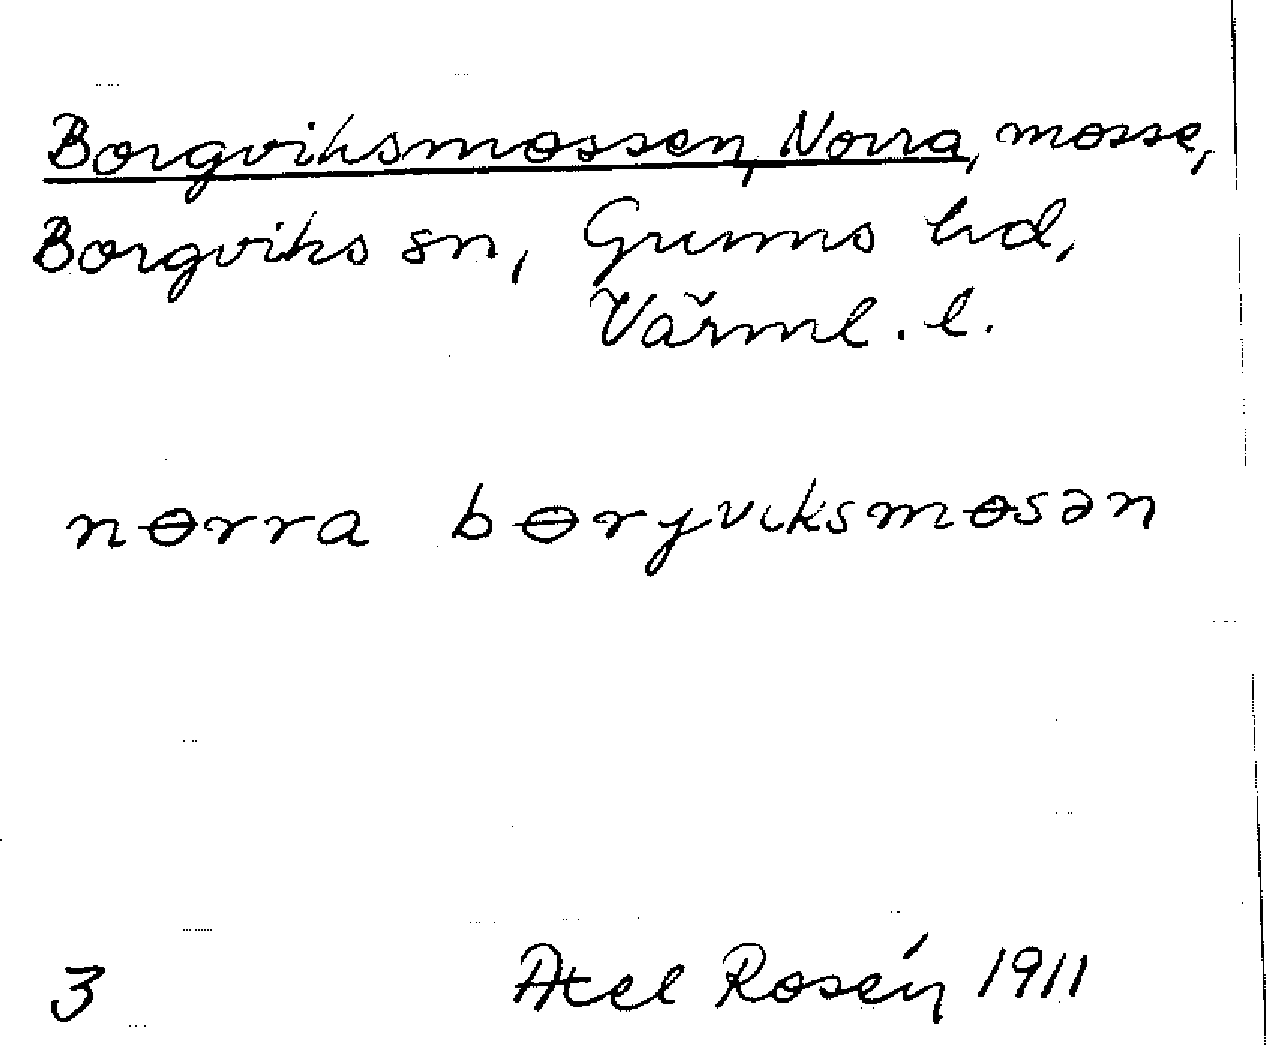 Borgviksmossen, Norra, mosse,
Borgviks sn, Grums hd,
Värml. l.
nɵrra bɵrjvɩksmɵsən
3 Axel Rosén 1911